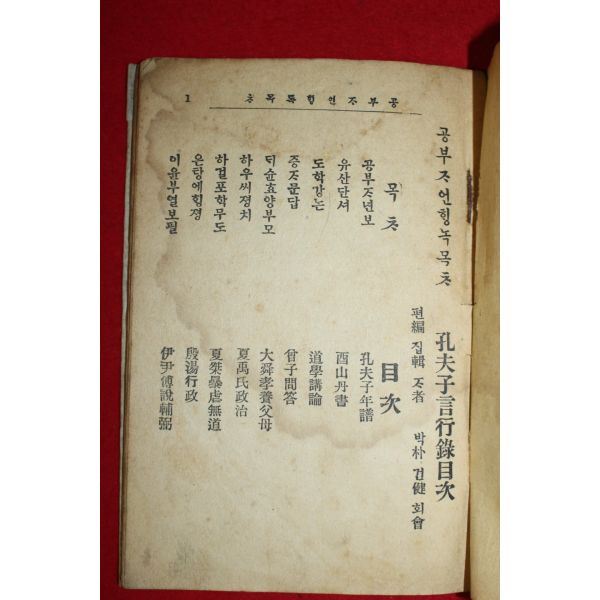 공부ᄌᆞ언ᄒᆡᆼ록목ᄎᆞ 1
공부ᄌᆞ언ᄒᆡᆼ녹목ᄎᆞ 孔夫子言行錄目次
편編 집輯 ᄌᆞ者 박朴 건健 회會
목ᄎᆞ 目次
공부ᄌᆞ년보 孔夫子年譜
유산단셔 酉山丹書
도학강논 道學講論
증ᄌᆞ문답 曾子問答
ᄃᆡ슌효양부모 大舜孝養父母
하우씨졍치 夏禹氏政治
하걸포학무도 夏桀暴虐無道
은탕에ᄒᆡᆼ졍 殷湯行政
이윤부열보필 伊尹傅說輔弼